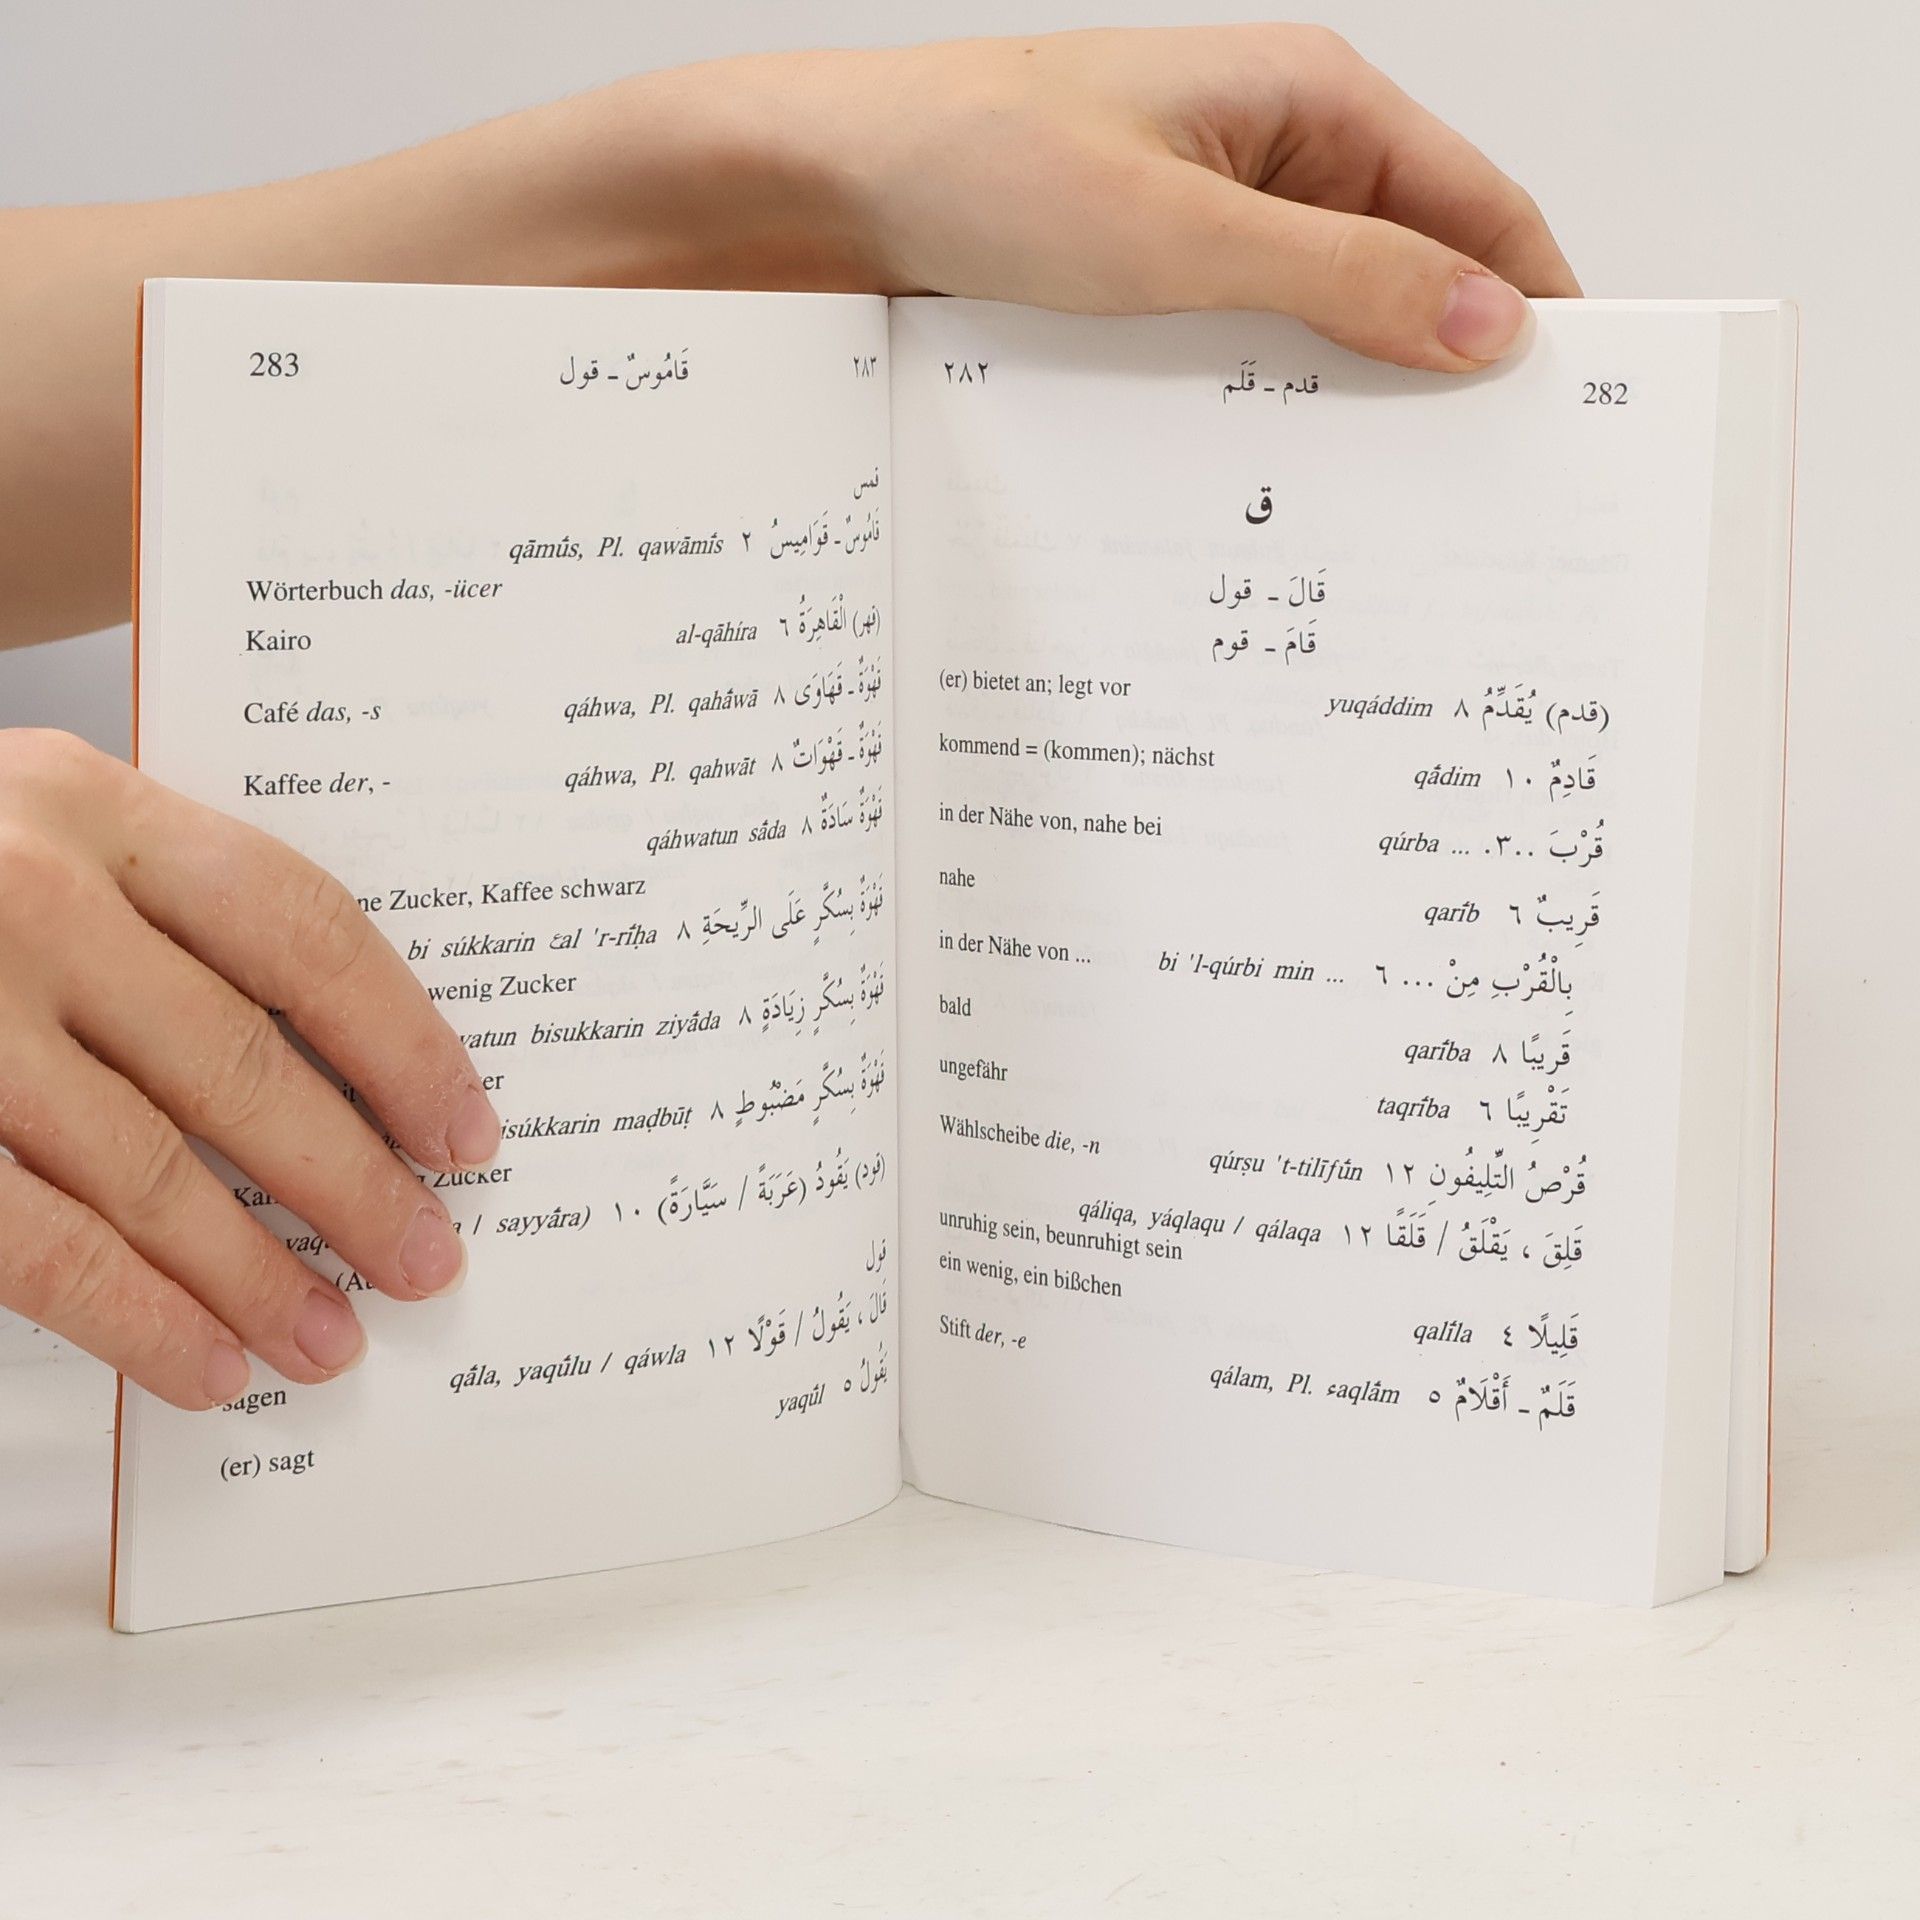 282 قدم ـ قَلَم ٢٨٢
ق
قَالَ ـ قول
قَامَ ـ قوم
(قدم) يُقَدِّمُ ٨ yuqáddim
(er) bietet an; legt vor
قَادِمٌ ١٠ qā́dim
kommend = (kommen); nächst
قُرْبَ ..٣. ... qúrba
in der Nähe von, nahe bei
قَرِيبٌ ٦ qarī́b
nahe
بِالْقُرْبِ مِنْ ... ٦ bi 'l-qúrbi min ...
in der Nähe von ...
قَرِيبًا ٨ qarī́ba
bald
تَقْرِيبًا ٦ taqrī́ba
ungefähr
قُرْصُ التِّلِيفُونِ ١٢ qúrṣu 't-tilīfū́n
Wählscheibe die, -n
قَلِقَ ، يَقْلَقُ / قَلَقًا ١٢ qáliqa, yáqlaqu / qálaqa
unruhig sein, beunruhigt sein
قَلِيلًا ٤ qalī́la
ein wenig, ein bißchen
قَلَمٌ ـ أَقْلَامٌ ٥ qálam, Pl. ءaqlā́m
Stift der, -e
٢٨٣ قَامُوسٌ ـ قول 283
قمس
قَامُوسٌ ـ قَوَامِيسُ ٢ qāmū́s, Pl. qawāmī́s
Wörterbuch das, -ücer
(قهر) الْقَاهِرَةُ ٦ al-qāhíra
Kairo
قَهْوَةٌ ـ قَهَاوَى ٨ qáhwa, Pl. qahā́wā
Café das, -s
قَهْوَةٌ ـ قَهْوَاتٌ ٨ qáhwa, Pl. qahwāt
Kaffee der, -
قَهْوَةٌ سَادَةٌ ٨ qáhwatun sā́da
ne Zucker, Kaffee schwarz
قَهْوَةٌ بِسُكَّرٍ عَلَى الرِّيحَةِ ٨ bi súkkarin عal 'r-rī́ḥa
wenig Zucker
قَهْوَةٌ بِسُكَّرٍ زِيَادَةٍ ٨ vatun bisukkarin ziyā́da
er
قَهْوَةٌ بِسُكَّرٍ مَضْبُوطٍ ٨ isúkkarin maḍbūṭ
Zucker
(قود) يَقُودُ (عَرَبَةً / سَيَّارَةً) ١٠ / sayyā́ra)
قول
قَالَ ، يَقُولُ / قَوْلًا ١٢ qā́la, yaqū́lu / qáwla
sagen
يَقُولُ ٥ yaqū́l
(er) sagt